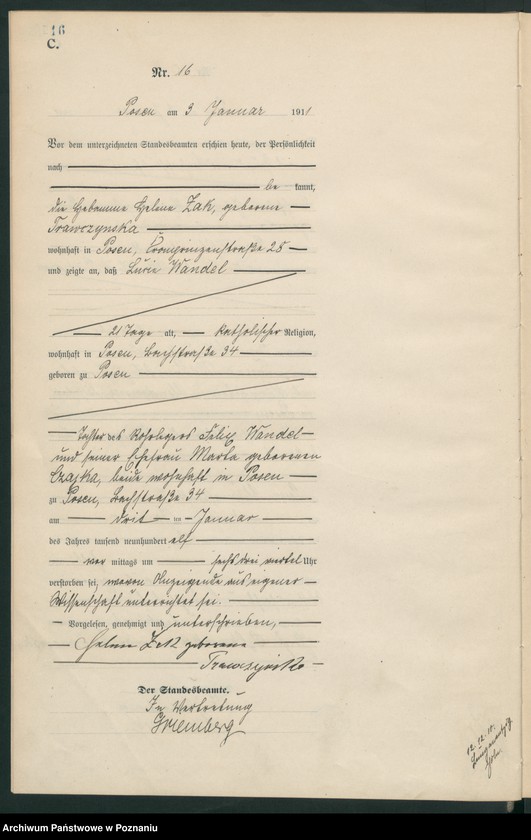 16
C.
Nr. 16
Posen am 3 Januar 1911
Vor dem unterzeichneten Standesbeamten erschien heute, der Persönlichkeit
nach
be kannt,
die Hebamme Helene Zak, geborene
Trawczynska
wohnhaft in Posen, Kronprinzenstraße 25
und zeigte an, daß Lucie Wandel
21 Tage alt, Katholischer Religion,
wohnhaft in Posen, Bachstraße 34
geboren zu Posen
Tochter des Rohrlegers Felix Wandel
und seiner Ehefrau Marta geborenen
Czajka, beide wohnhaft in Posen
zu Posen, Bachstraße 34
am drit ten Januar
des Jahres tausend neunhundert elf
vor mittags um sechs drei viertel Uhr
verstorben sei, wovon Anzeigende aus eigener
Wissenschaft unterrichtet sei.
Vorgelesen, genehmigt und unterschrieben,
Helene Zak geborene
Trawczynska
Der Standesbeamte.
In Vertretung
12. 12. 10.
Archiwum Państwowe w Poznaniu